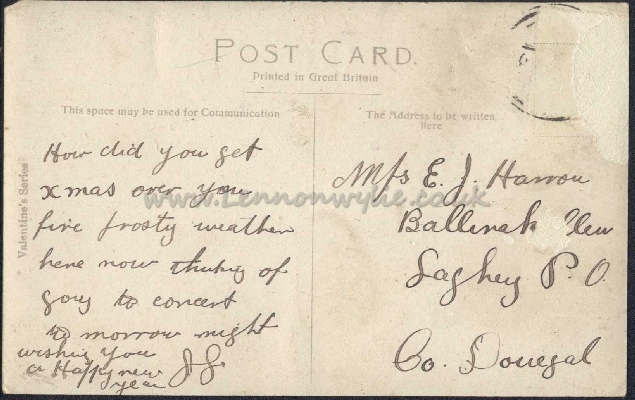 POST CARD.
Printed in Great Britain
This space may be used for Communication
The Address to be written here
Valentine's Series
How did you get
xmas over you
fine frosty weather
here now thinking of
going to concert
to morrow night
wishing you
a Happy new
year J G
Miss E. J. Harron
Ballinak
Laghey P. O.
Co. Donegal
www.Lennonwylie.co.uk